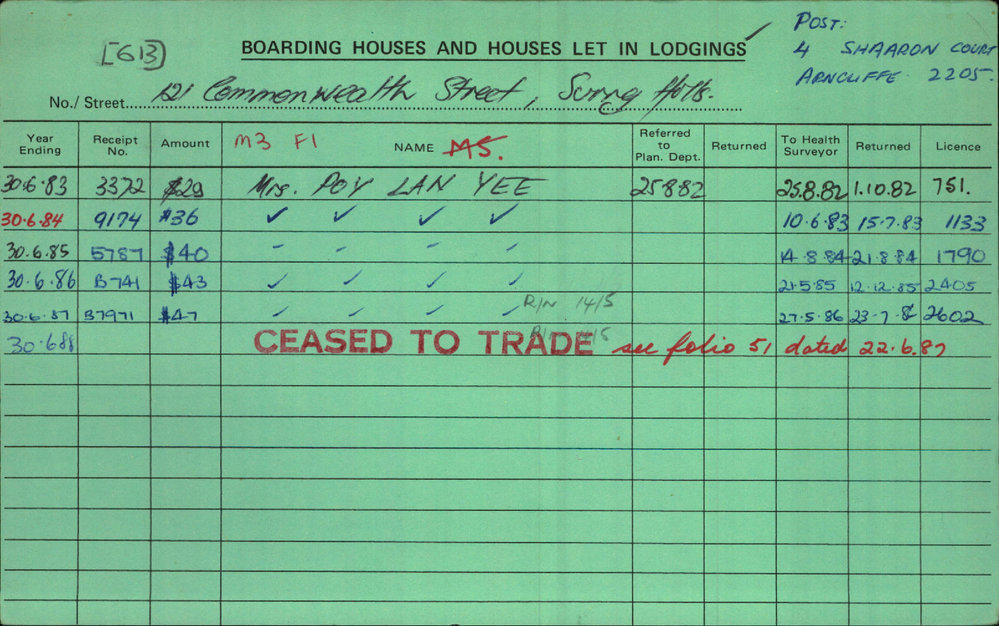 [613]
BOARDING HOUSES AND HOUSES LET IN LODGINGS ✓
POST:
4 SHAARON COURT
ARNCLIFFE 2205.
No./ Street 121 Commonwealth Street, Surry Hills.
Year Ending Receipt No. Amount M3 F1 NAME MS. Referred to Plan. Dept. Returned To Health Surveyor Returned Licence
30.6.83 3372 $29 Mrs. POY LAN YEE 25882 25.8.82 1.10.82 751.
30.6.84 9174 $36 ✓ ✓ ✓ ✓ 10.6.83 15.7.83 1133
30.6.85 5787 $40 – – – – 14.8.84 21.8.84 1790
30.6.86 B741 $43 ✓ ✓ ✓ ✓ 21.5.85 12.12.85 2405
R/N 14/5
30.6.87 B7971 $47 ✓ ✓ ✓ ✓ 27.5.86 23.7.8 2602
30.6.88 CEASED TO TRADE see folio 51 dated 22.6.87